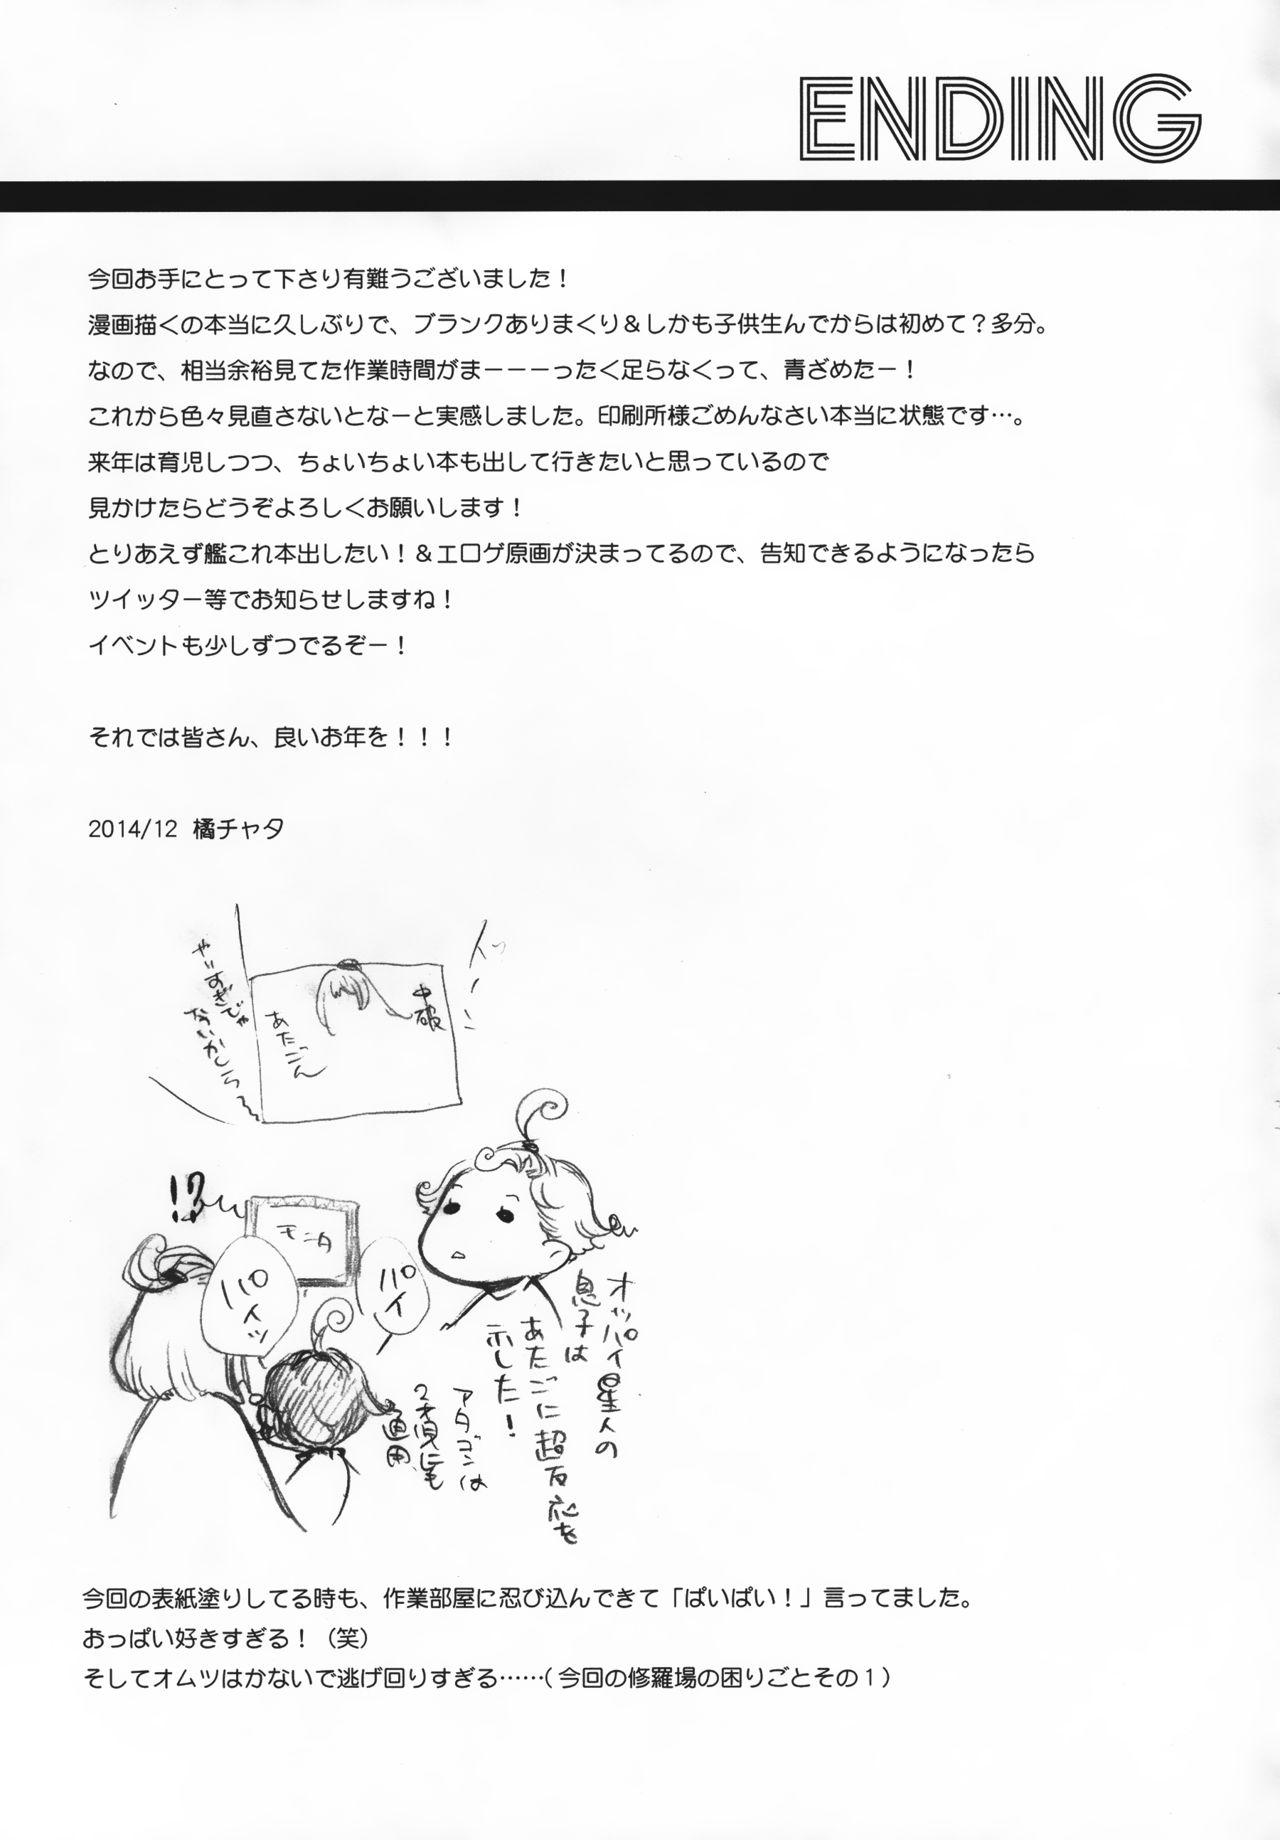 ENDING
今回お手にとって下さり有難うございました！
漫画描くの本当に久しぶりで、ブランクありまくり＆しかも子供生んでからは初めて？多分。
なので、相当余裕見てた作業時間がまーーーったく足らなくって、青ざめたー！
これから色々見直さないとなーと実感しました。印刷所様ごめんなさい本当に状態です…。
来年は育児しつつ、ちょいちょい本も出して行きたいと思っているので
見かけたらどうぞよろしくお願いします！
とりあえず艦これ本出したい！＆エロゲ原画が決まってるので、告知できるようになったら
ツイッター等でお知らせしますね！
イベントも少しずつでるぞー！
それでは皆さん、良いお年を！！！
2014/12 橘チャタ
イッ
中破
あたごん
やりすぎじゃ
ないかしら〜
!?
モニタ
パイ
パイッ
オッパイ星人の
息子は
あたごに超反応を
示した！
アタゴンは
2才児にも
通用
今回の表紙塗りしてる時も、作業部屋に忍び込んできて「ぱいぱい！」言ってました。
おっぱい好きすぎる！（笑）
そしてオムツはかないで逃げ回りすぎる……（今回の修羅場の困りごとその１）